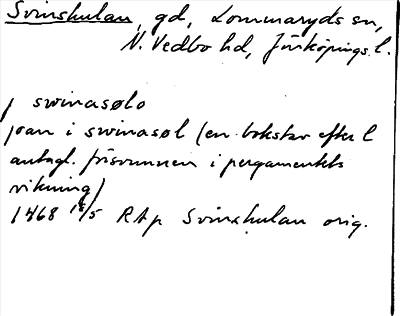 Svinshulan, gd, Lommaryds sn,
N. Vedbo hd, Jönköpings l.
j swinasølo
joan i swinasøl (en bokstav efter l
antagl. försvunnen i pergamentets
vikning)
1468 18/5 RAp Svinshulan orig.